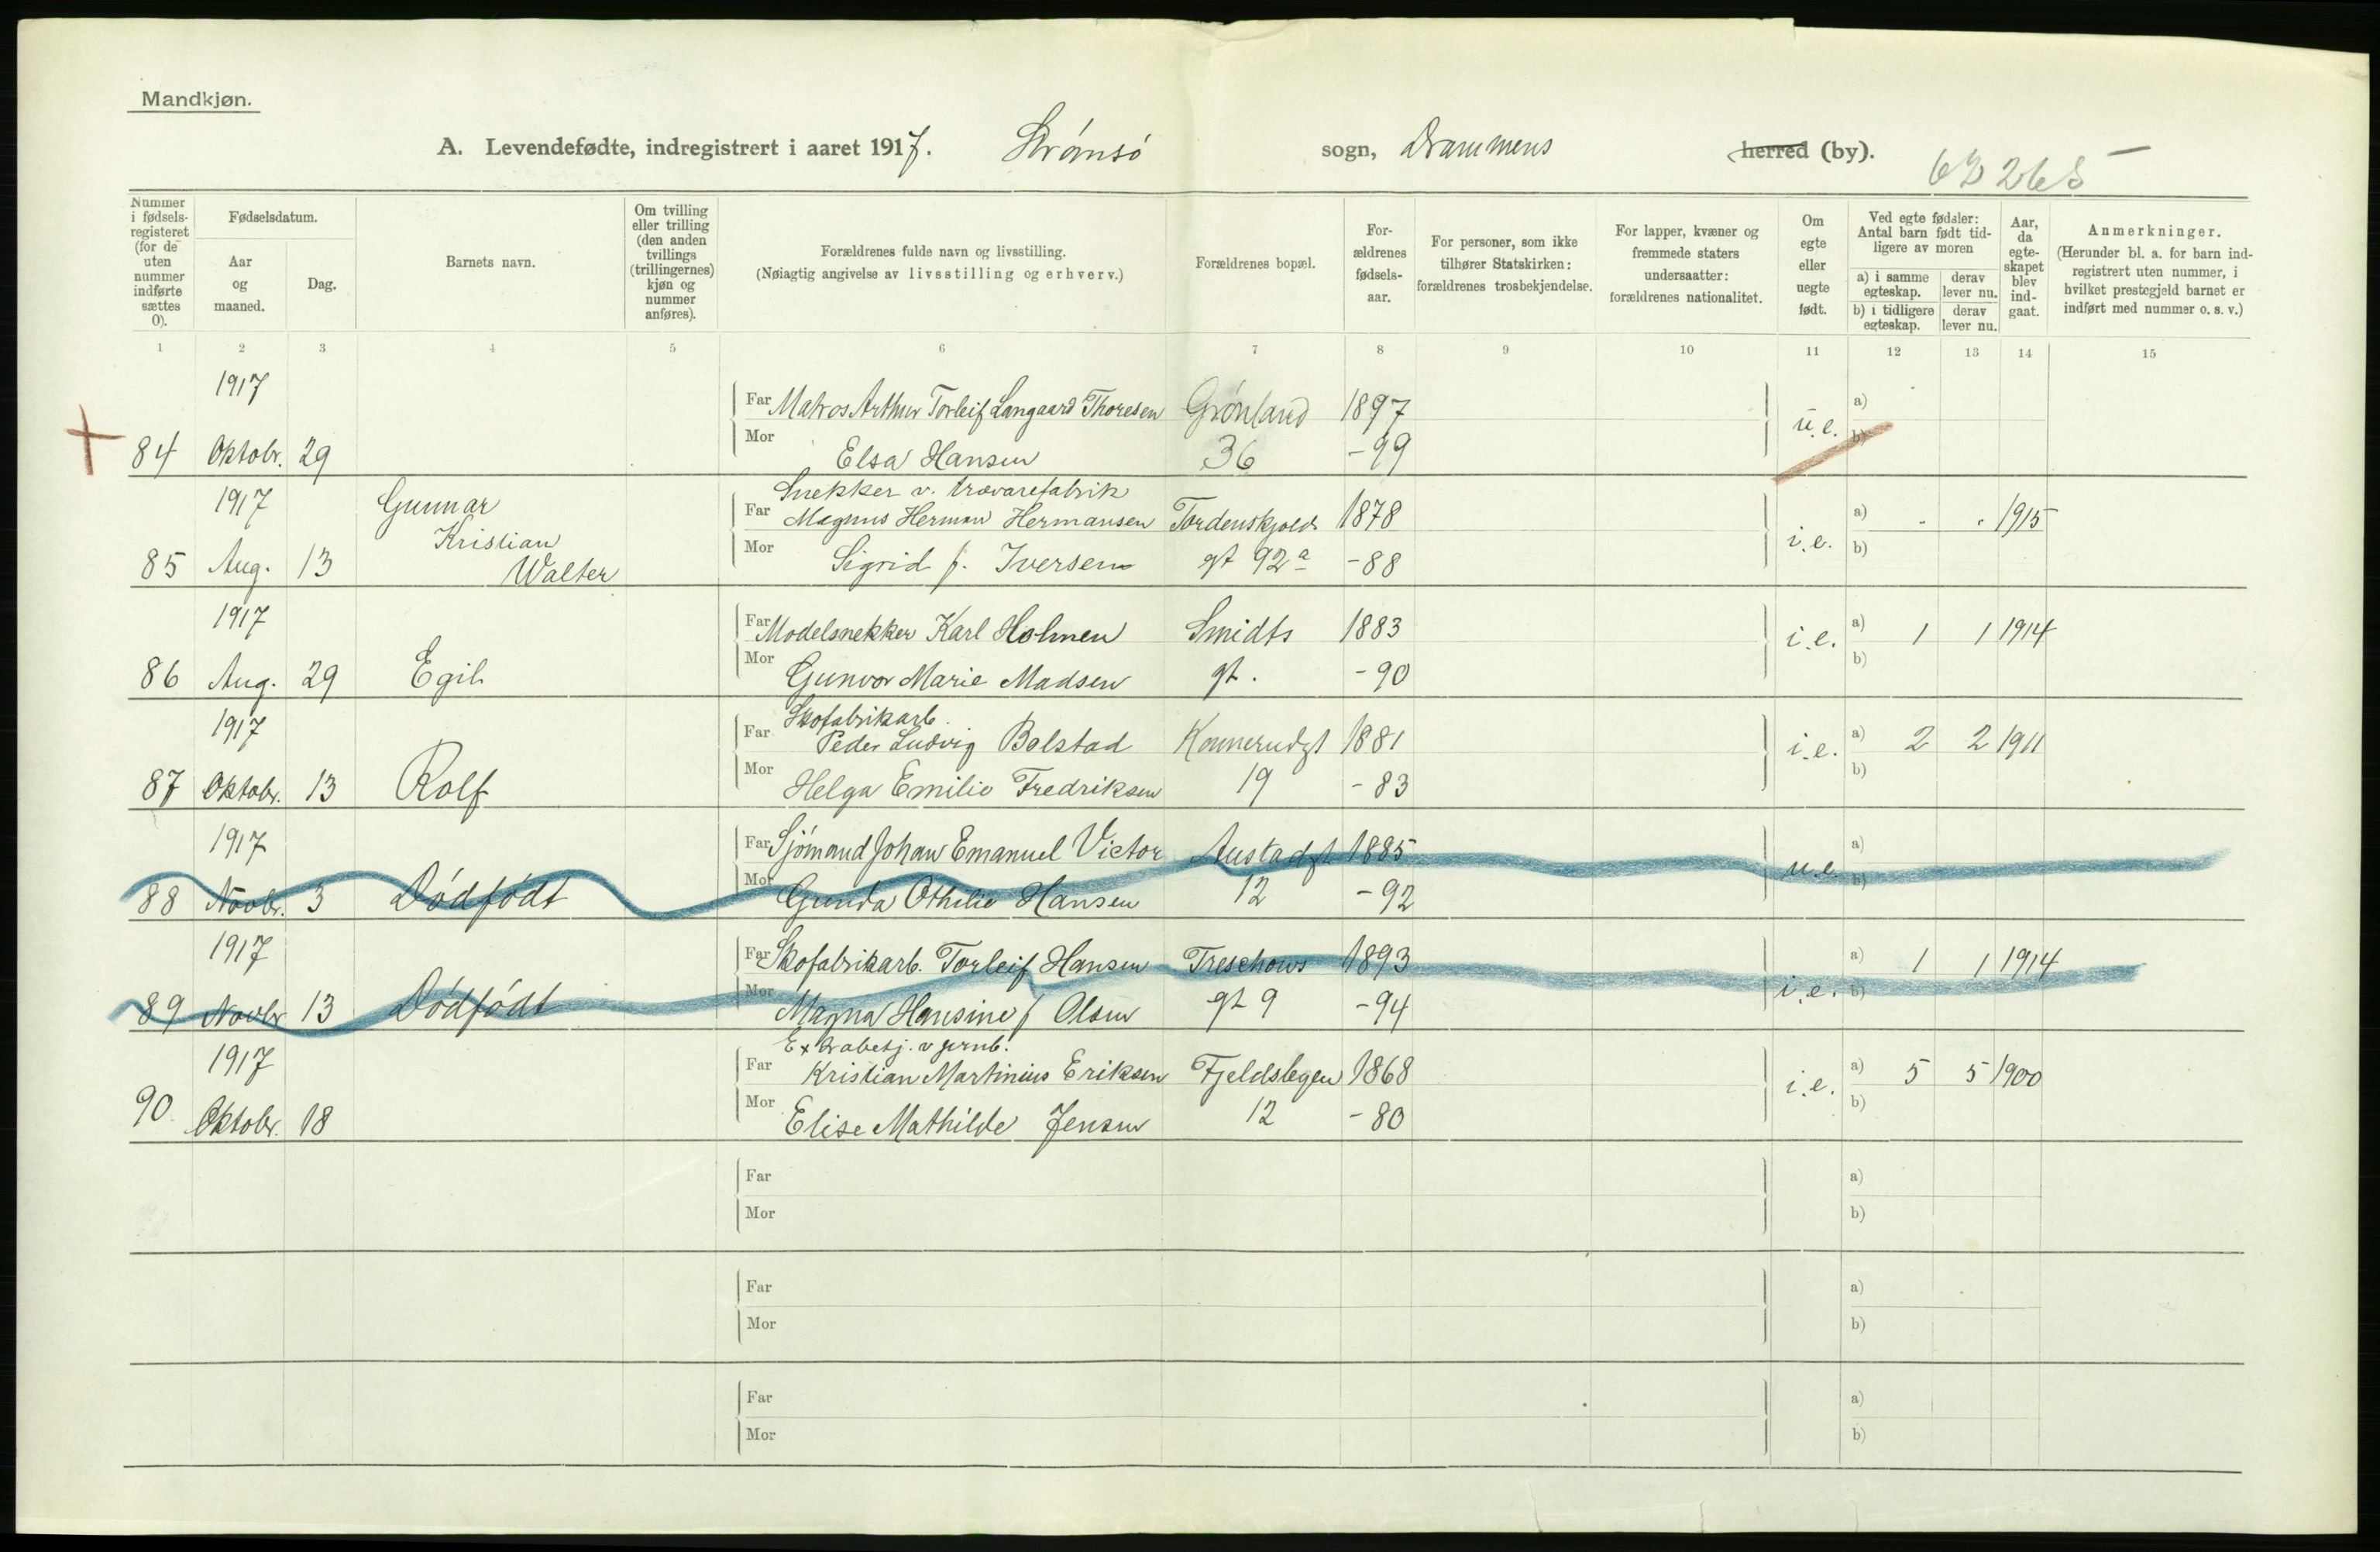 Mandkjøn.
A. Levendefødte, indregistrert i aaret 1917. Strømsø sogn, Drammens herred (by).
Nummer i fødsels-registeret (for de uten nummer indførte sættes 0).
Fødselsdatum.
Aar og maaned.
Dag.
Barnets navn.
Om tvilling eller trilling (den anden tvillings (trillingernes) kjøn og nummer anføres).
Forældrenes fulde navn og livsstilling.
(Nøiagtig angivelse av livsstilling og erhverv.)
Forældrenes bopæl.
For-ældrenes fødsels-aar.
For personer, som ikke tilhører Statskirken: forældrenes trosbekjendelse.
For lapper, kvæner og fremmede staters undersaatter: forældrenes nationalitet.
Om egte eller uegte født.
Ved egte fødsler: Antal barn født tid-ligere av moren
a) i samme egteskap. derav lever nu.
b) i tidligere egteskap. derav lever nu.
Aar, da egte-skapet blev ind-gaat.
Anmerkninger.
(Herunder bl. a. for barn ind-registrert uten nummer, i hvilket prestegjeld barnet er indført med nummer o. s. v.)
1 2 3 4 5 6 7 8 9 10 11 12 13 14 15
1917 Far Matros Arthur Torleif Langaard Thoresen Grønland 1897 u.e. a)
84 Oktobr. 29 Mor Elsa Hansen 36 -99 b)
1917 Gunnar Snekker v. trævarefabrik
Far Magnus Herman Hermansen Tordenskjolds 1878 i.e. a) . . 1915
Kristian
85 Aug. 13 Walter Mor Sigrid f. Iversen gt 92a -88 b)
1917 Far Modelsnekker Karl Holmen Smidts 1883 i.e. a) 1 1 1914
86 Aug. 29 Egil Mor Gunvor Marie Madsen gt. -90 b)
1917 Skofabrikarb.
Far Peder Ludvig Bolstad Konnerudgt 1881 i.e. a) 2 2 1911
87 Oktobr. 13 Rolf Mor Helga Emilie Fredriksen 19 -83 b)
1917 Far Sjømand Johan Emanuel Victor Austadgt 1885 u.e. a)
88 Novbr. 3 Dødfødt Mor Gunda Othilie Hansen 12 -92 b)
1917 Far Skofabrikarb. Torleif Hansen Treschows 1893 i.e. a) 1 1 1914
89 Novbr 13 Dødfødt Mor Magna Hansine f Olsen gt 9 -94 b)
1917 Extrabetj. v jernb.
Far Kristian Martinius Eriksen Fjeldslegen 1868 i.e. a) 5 5 1900
90. Oktobr. 18 Mor Elise Mathilde Jensen 12 -80 b)
Far a)
Mor b)
Far a)
Mor b)
Far a)
Mor b)